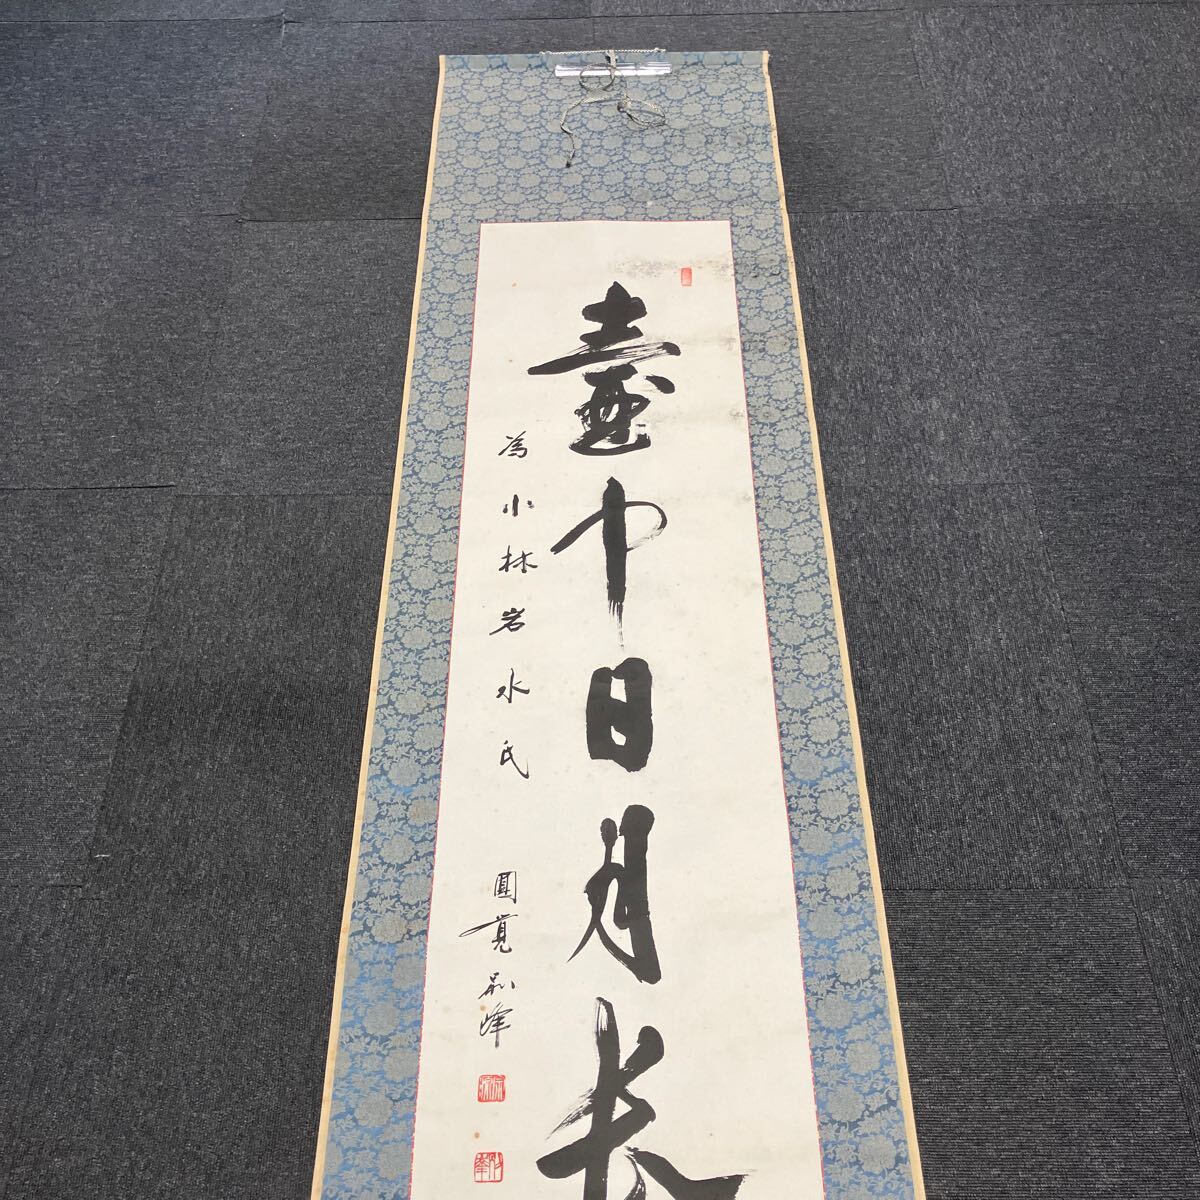 壷中日月長
為小林岩水氏 圓覚別峰